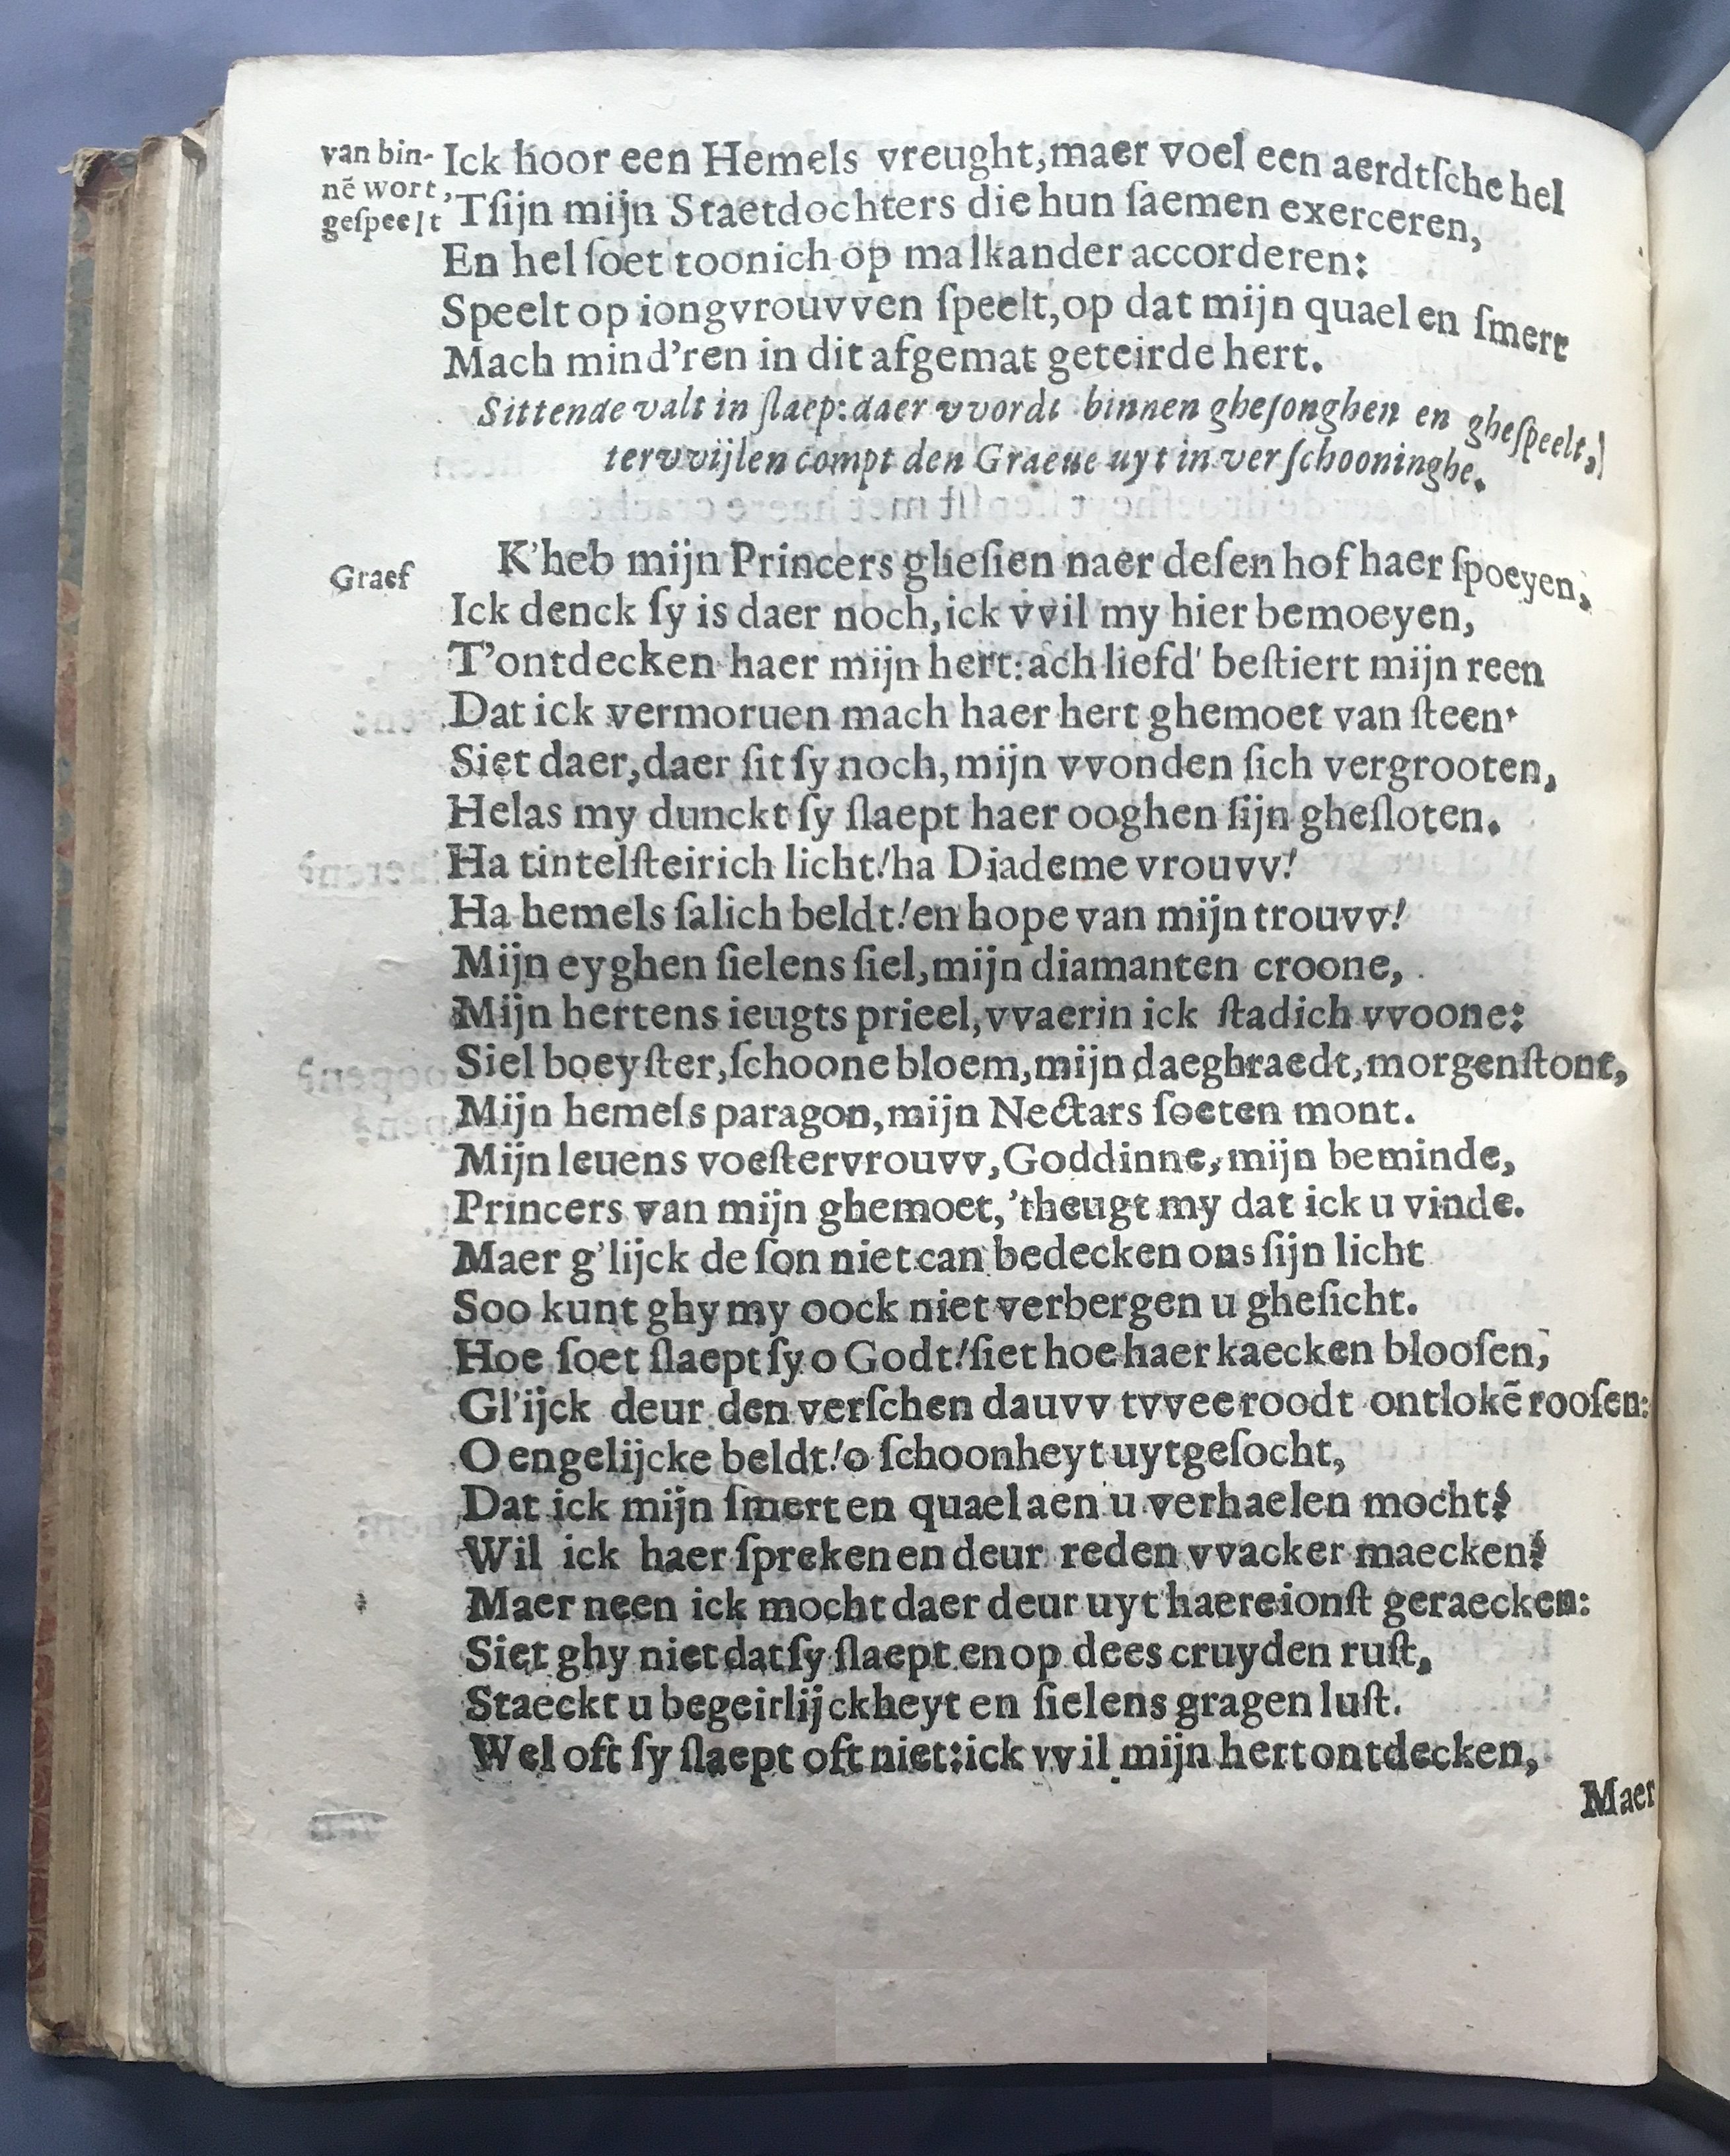 van bin-
nē wort
geſpeelt
Ick hoor een Hemels vreught, maer voel een aerdtſche hel
'Tſijn mijn Staetdochters die hun ſaemen exerceren,
En hel ſoet toonich op malkander accorderen:
Speelt op iongvrouvven ſpeelt, op dat mijn quael en ſmert
Mach mind'ren in dit afgemat geteirde hert.
Sittende valt in ſlaep: daer vvordt binnen gheſonghen en gheſpeelt,
tervvijlen compt den Graeue uyt in verſchooninghe.
Graef
K'heb mijn Princers gheſien naer deſen hof haer ſpoeyen,
Ick denck ſy is daer noch, ick vvil my hier bemoeyen,
T'ontdecken haer mijn hert: ach liefd' beſtiert mijn reen
Dat ick vermoruen mach haer hert ghemoet van ſteen.
Siet daer, daer ſit ſy noch, mijn vvonden ſich vergrooten,
Helas my dunckt ſy ſlaept haer ooghen ſijn gheſloten.
Ha tintelſteirich licht! ha Diademe vrouvv!
Ha hemels ſalich beldt! en hope van mijn trouvv!
Mijn eyghen ſielens ſiel, mijn diamanten croone,
Mijn hertens ieugts prieel, vvaerin ick ſtadich vvoone:
Siel boeyſter, ſchoone bloem, mijn daeghraedt, morgenſtont,
Mijn hemels paragon, mijn Nectars ſoeten mont.
Mijn leuens voeſtervrouvv, Goddinne, mijn beminde,
Princers van mijn ghemoet, 'theugt my dat ick u vinde.
Maer g'lijck de ſon niet can bedecken ons ſijn licht
Soo kunt ghy my oock niet verbergen u gheſicht.
Hoe ſoet ſlaept ſy o Godt! ſiet hoe haer kaecken blooſen,
Gl'ijck deur den verſchen dauvv tvvee roodt ontlokē rooſen:
O engelijcke beldt! o ſchoonheyt uytgeſocht,
Dat ick mijn ſmert en quael aen u verhaelen mocht?
Wil ick haer ſpreken en deur reden vvacker maecken?
Maer neen ick mocht daer deur uyt haere ionſt geraecken:
Siet ghy niet dat ſy ſlaept en op dees cruyden ruſt,
Staeckt u begeirlijckheyt en ſielens gragen luſt.
Wel oft ſy ſlaept oft niet: ick vvil mijn hert ontdecken,
Maer